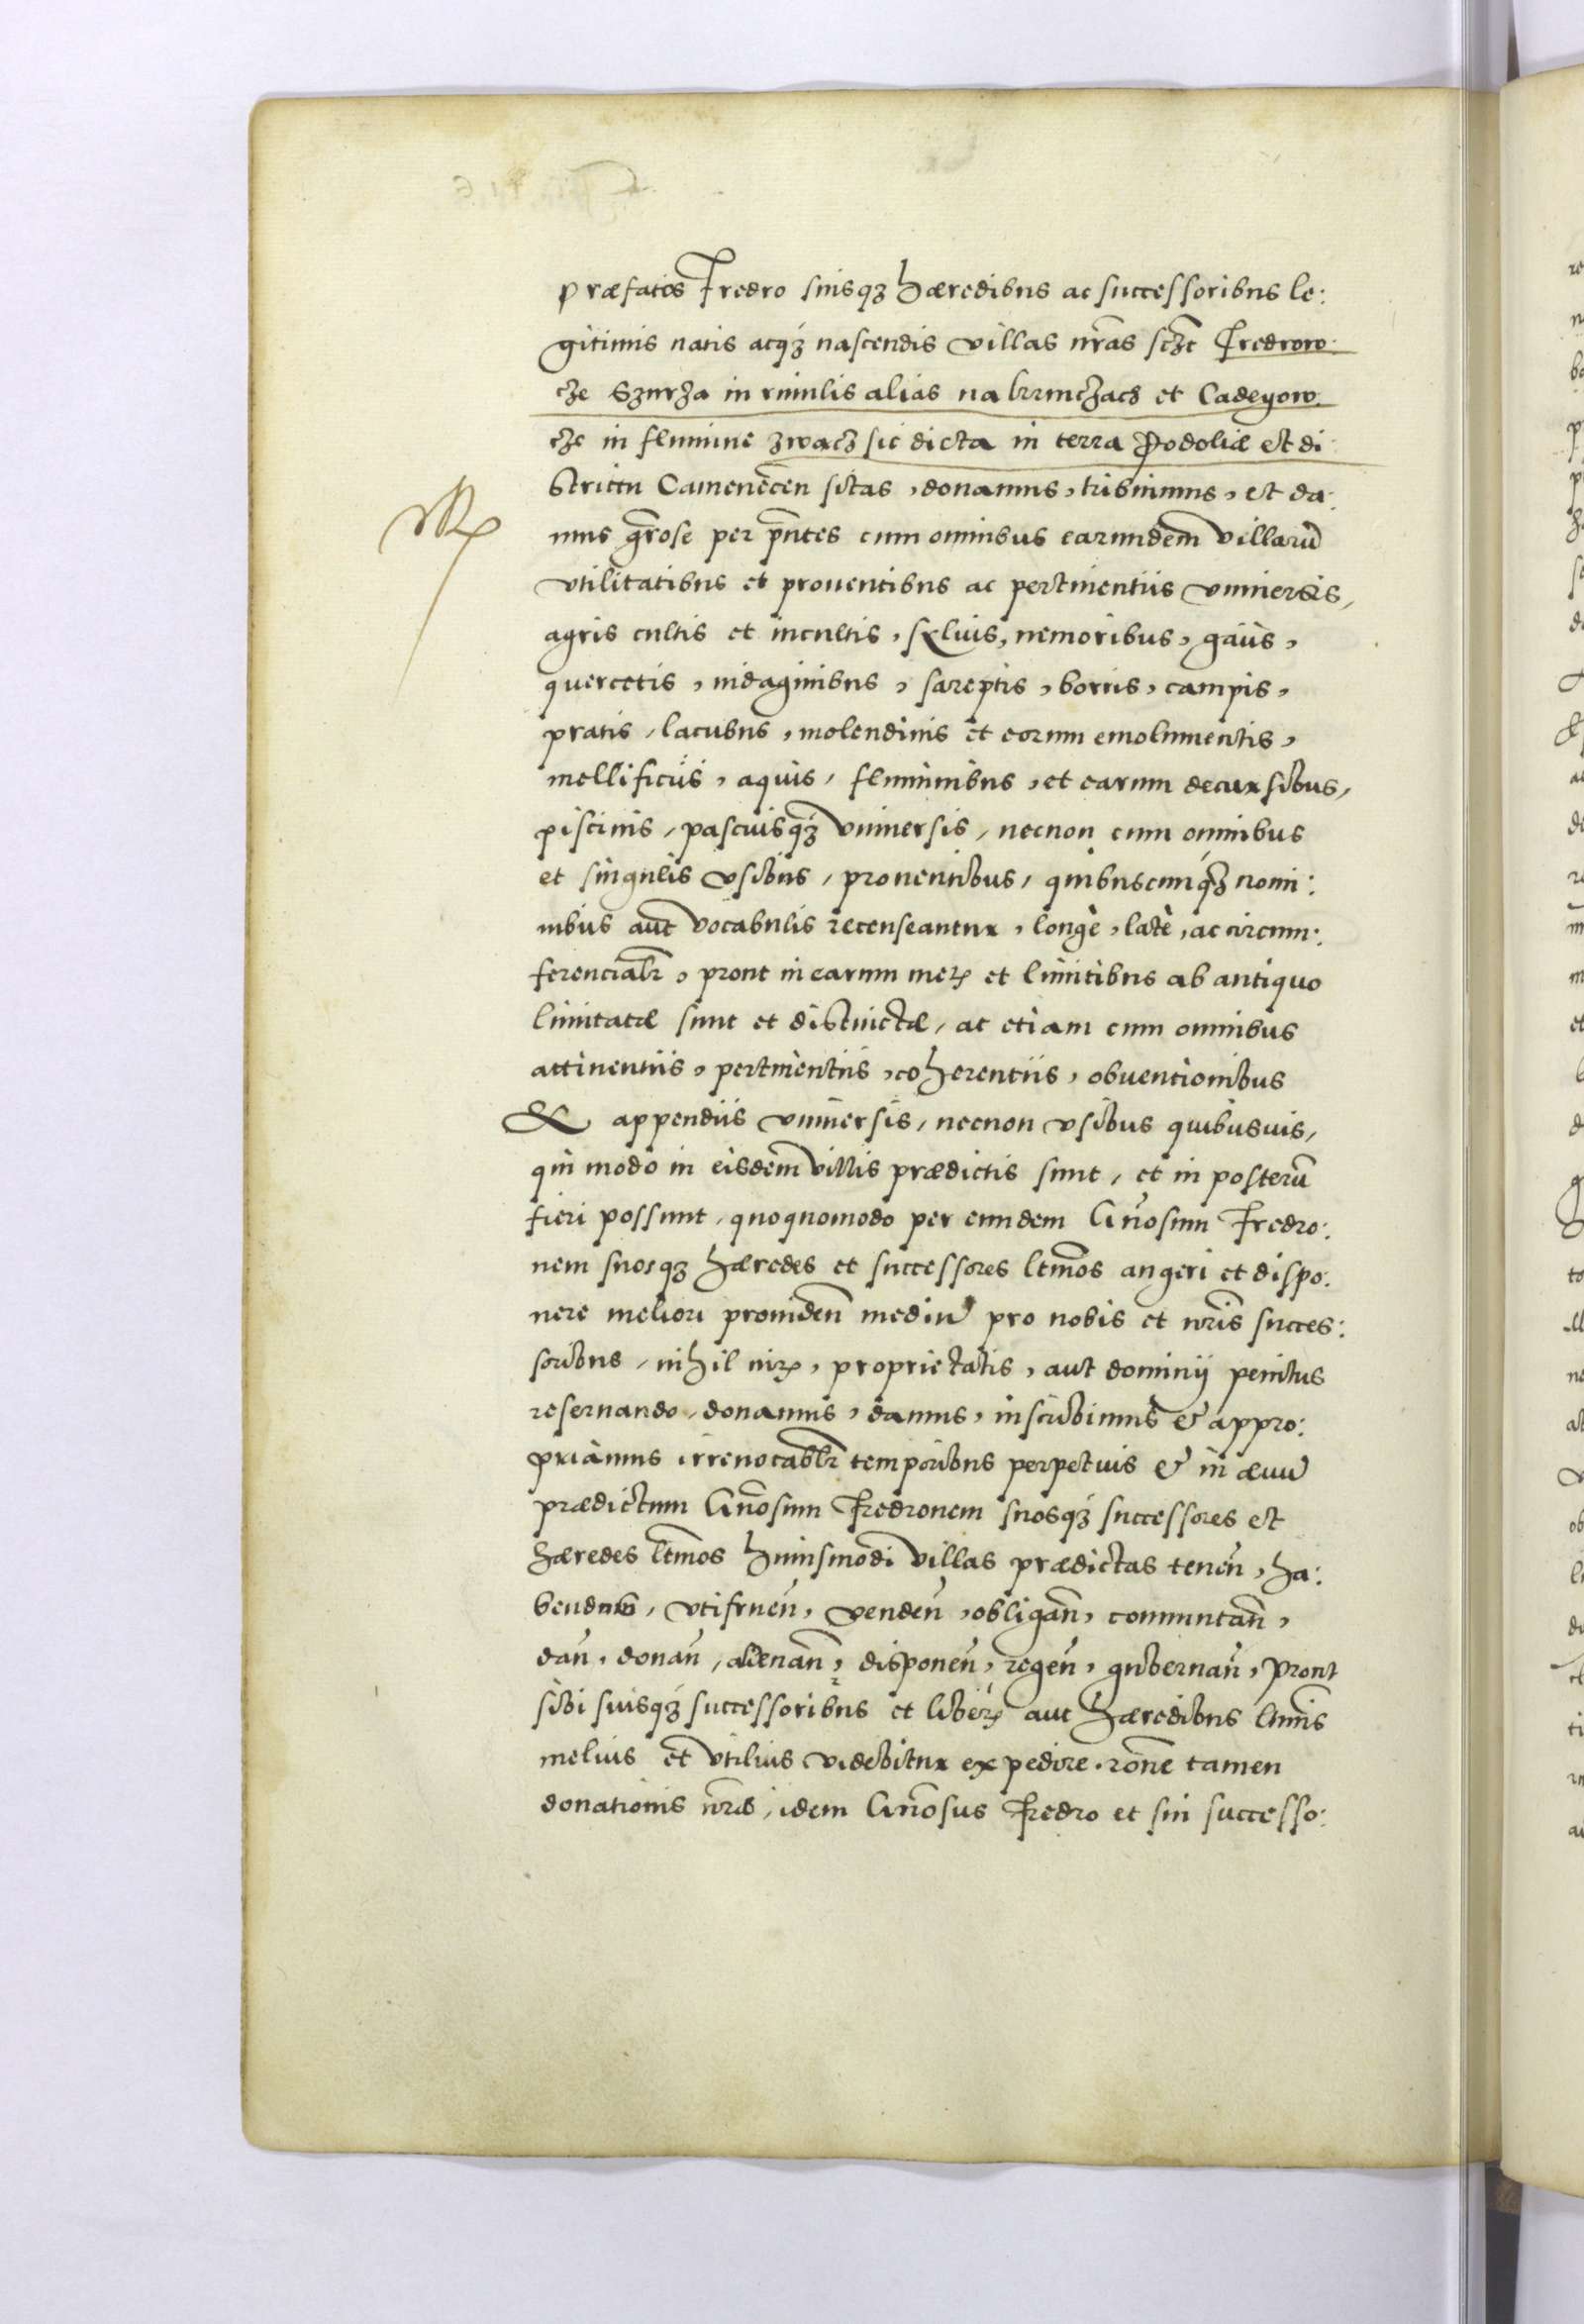 præfatos Fredro suisqz hæredibus ac successoribus le:
gitimis natis atqz nascendis villas nr̃as sczt Fredrow:
cze Szurza in riuulis alias na krinczach et Cadeyow:
cze in flumine zwacz sic dicta in terra Podoliæ et di:
strictu Camenecen̄ sitas, donamus, tribuimus, et da:
mus gr̃ose per pn̄tes cum omnibus earundem villarū
vtilitatibus et prouentibus ac pertinentiis vniuersis,
agris cultis et incultis, syluis, nemoribus, gaiis,
quercetis, indaginibus, sareptis, borris, campis,
pratis, lacubus, molendinis et eorum emolumentis,
mellificiis, aquis, fluminibus, et earum decursibus,
piscinis, pascuisqz vniuersis, necnon cum omnibus
et singulis vsibus, prouentibus, quibuscunqz nomi:
nibus aut vocabulis recenseantur, longè, latè, ac circum:
ferencialr̃, prout in earum metꝭ et limitibus ab antiquo
limitatæ sunt et distinctæ, ac etiam cum omnibus
attinentiis, pertinentiis, coherentiis, obuentionibus
& appendiis vniuersis, necnon vsibus quibusuis,
qui modo in eisdem villis prædictis sunt, et in posterū
fieri possunt, quoquomodo per eundem Gn̄osum Fredro:
nem suosqz hæredes et successores ltm̄os augeri et dispo:
nere meliori prouiden̄ mediū pro nobis et nr̃is succes:
soribus, nihil iurꝭ, proprietatis, aut dominij penitus
reseruando, donamus, damus, inscribimus & appro:
priamus irreuocabilr̃ temporibus perpetuis & in æuū
prædictum Gn̄osum Fredronem suosqz successores et
hæredes ltm̄os huiusmodi villas prædictas tenen̄, ha:
bendas, vtifruen̄, venden̄, obligan̄, commutan̄,
dan̄, donan̄, alienan̄, disponen̄, regen̄, gubernan̄, prout
sibi suisqz successoribus et liberꝭ aut hæredibus ltm̄is
melius et vtilius videbitur expedire. rōne tamen
donationis nr̃æ, idem Gn̄osus Fredro et sui successo: